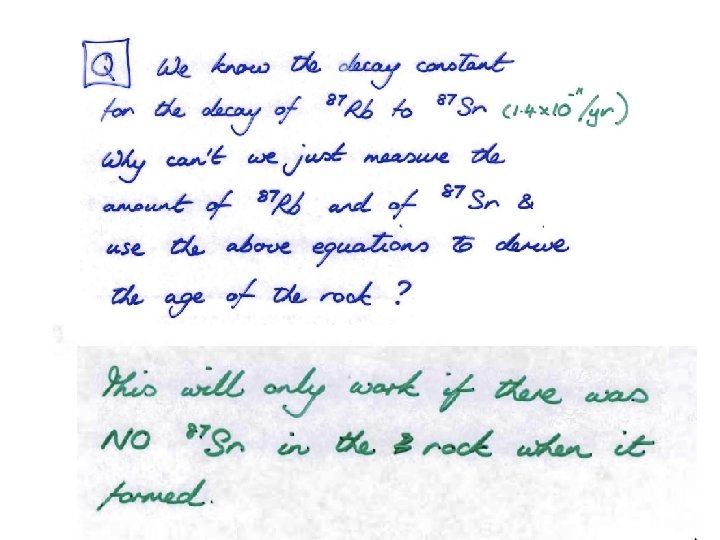 Q We know the decay constant
for the decay of ⁸⁷Rb to ⁸⁷Sr (1.4x10⁻¹¹/yr)
Why can't we just measure the
amount of ⁸⁷Rb and of ⁸⁷Sr &
use the above equations to derive
the age of the rock?
This will only work if there was
NO ⁸⁷Sr in the rock when it
formed.